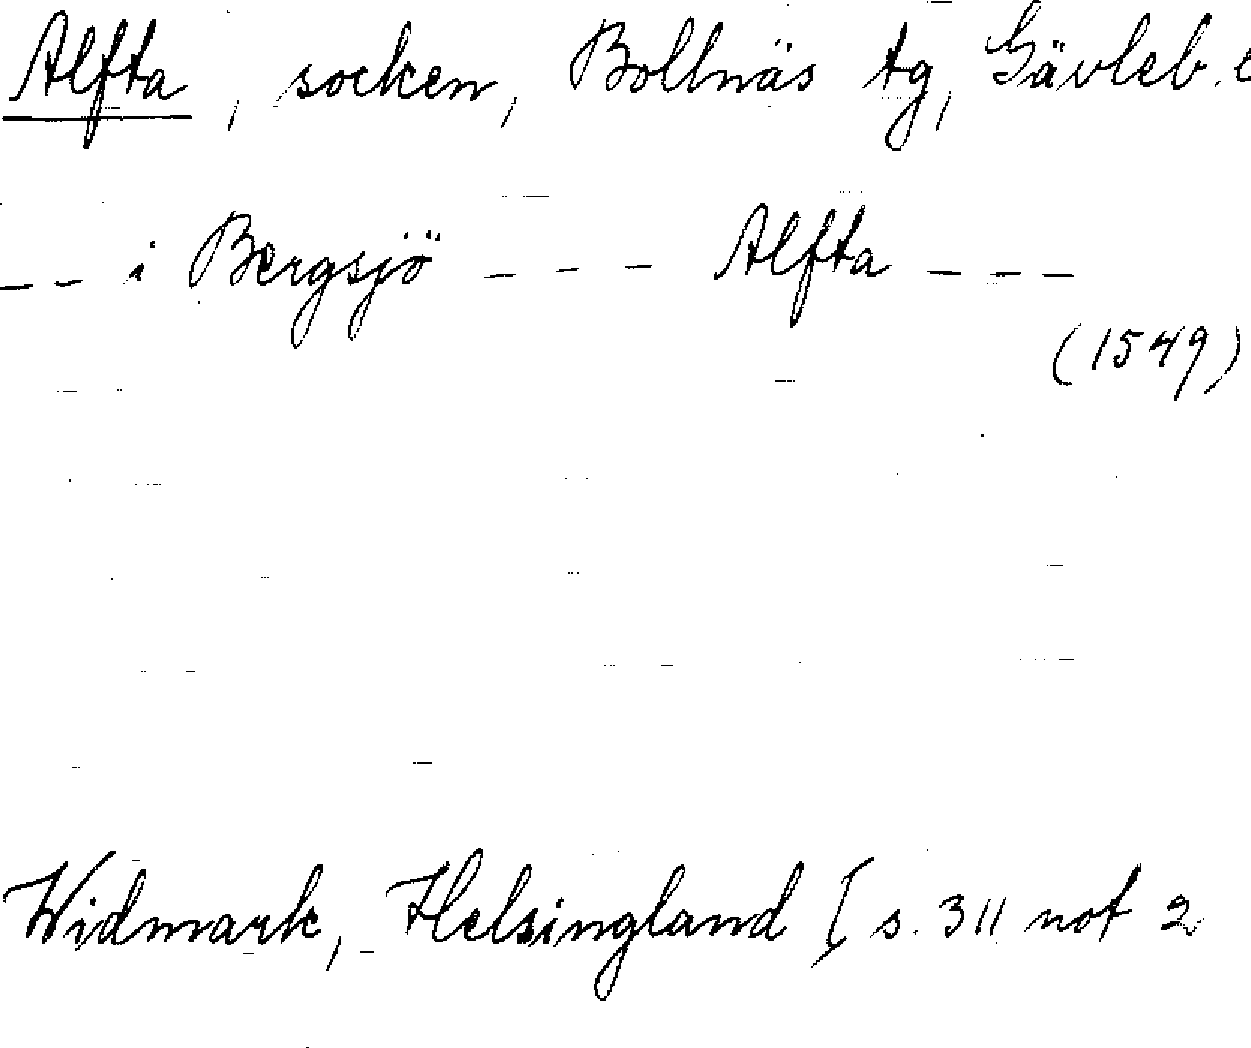 Alfta, socken, Bollnäs tg, Gävleb.
-- i Bergsjö --- Alfta ---
(1549)
Widmark, Helsingland I s. 311 not 2